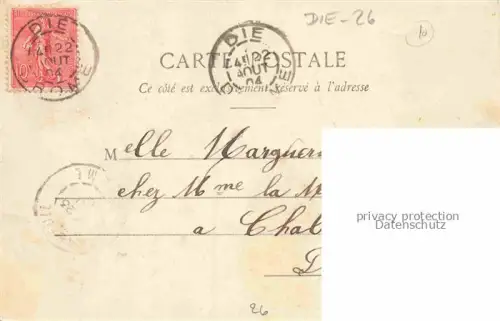 DIE-26
10
DIE
22
AOUT
04
DIE
22
AOUT
04
CARTE POSTALE
Ce côté est exclusivement réservé à l'adresse
Melle Margueri
chez Mme la M
a Chab
D
privacy protection
Datenschutz
26